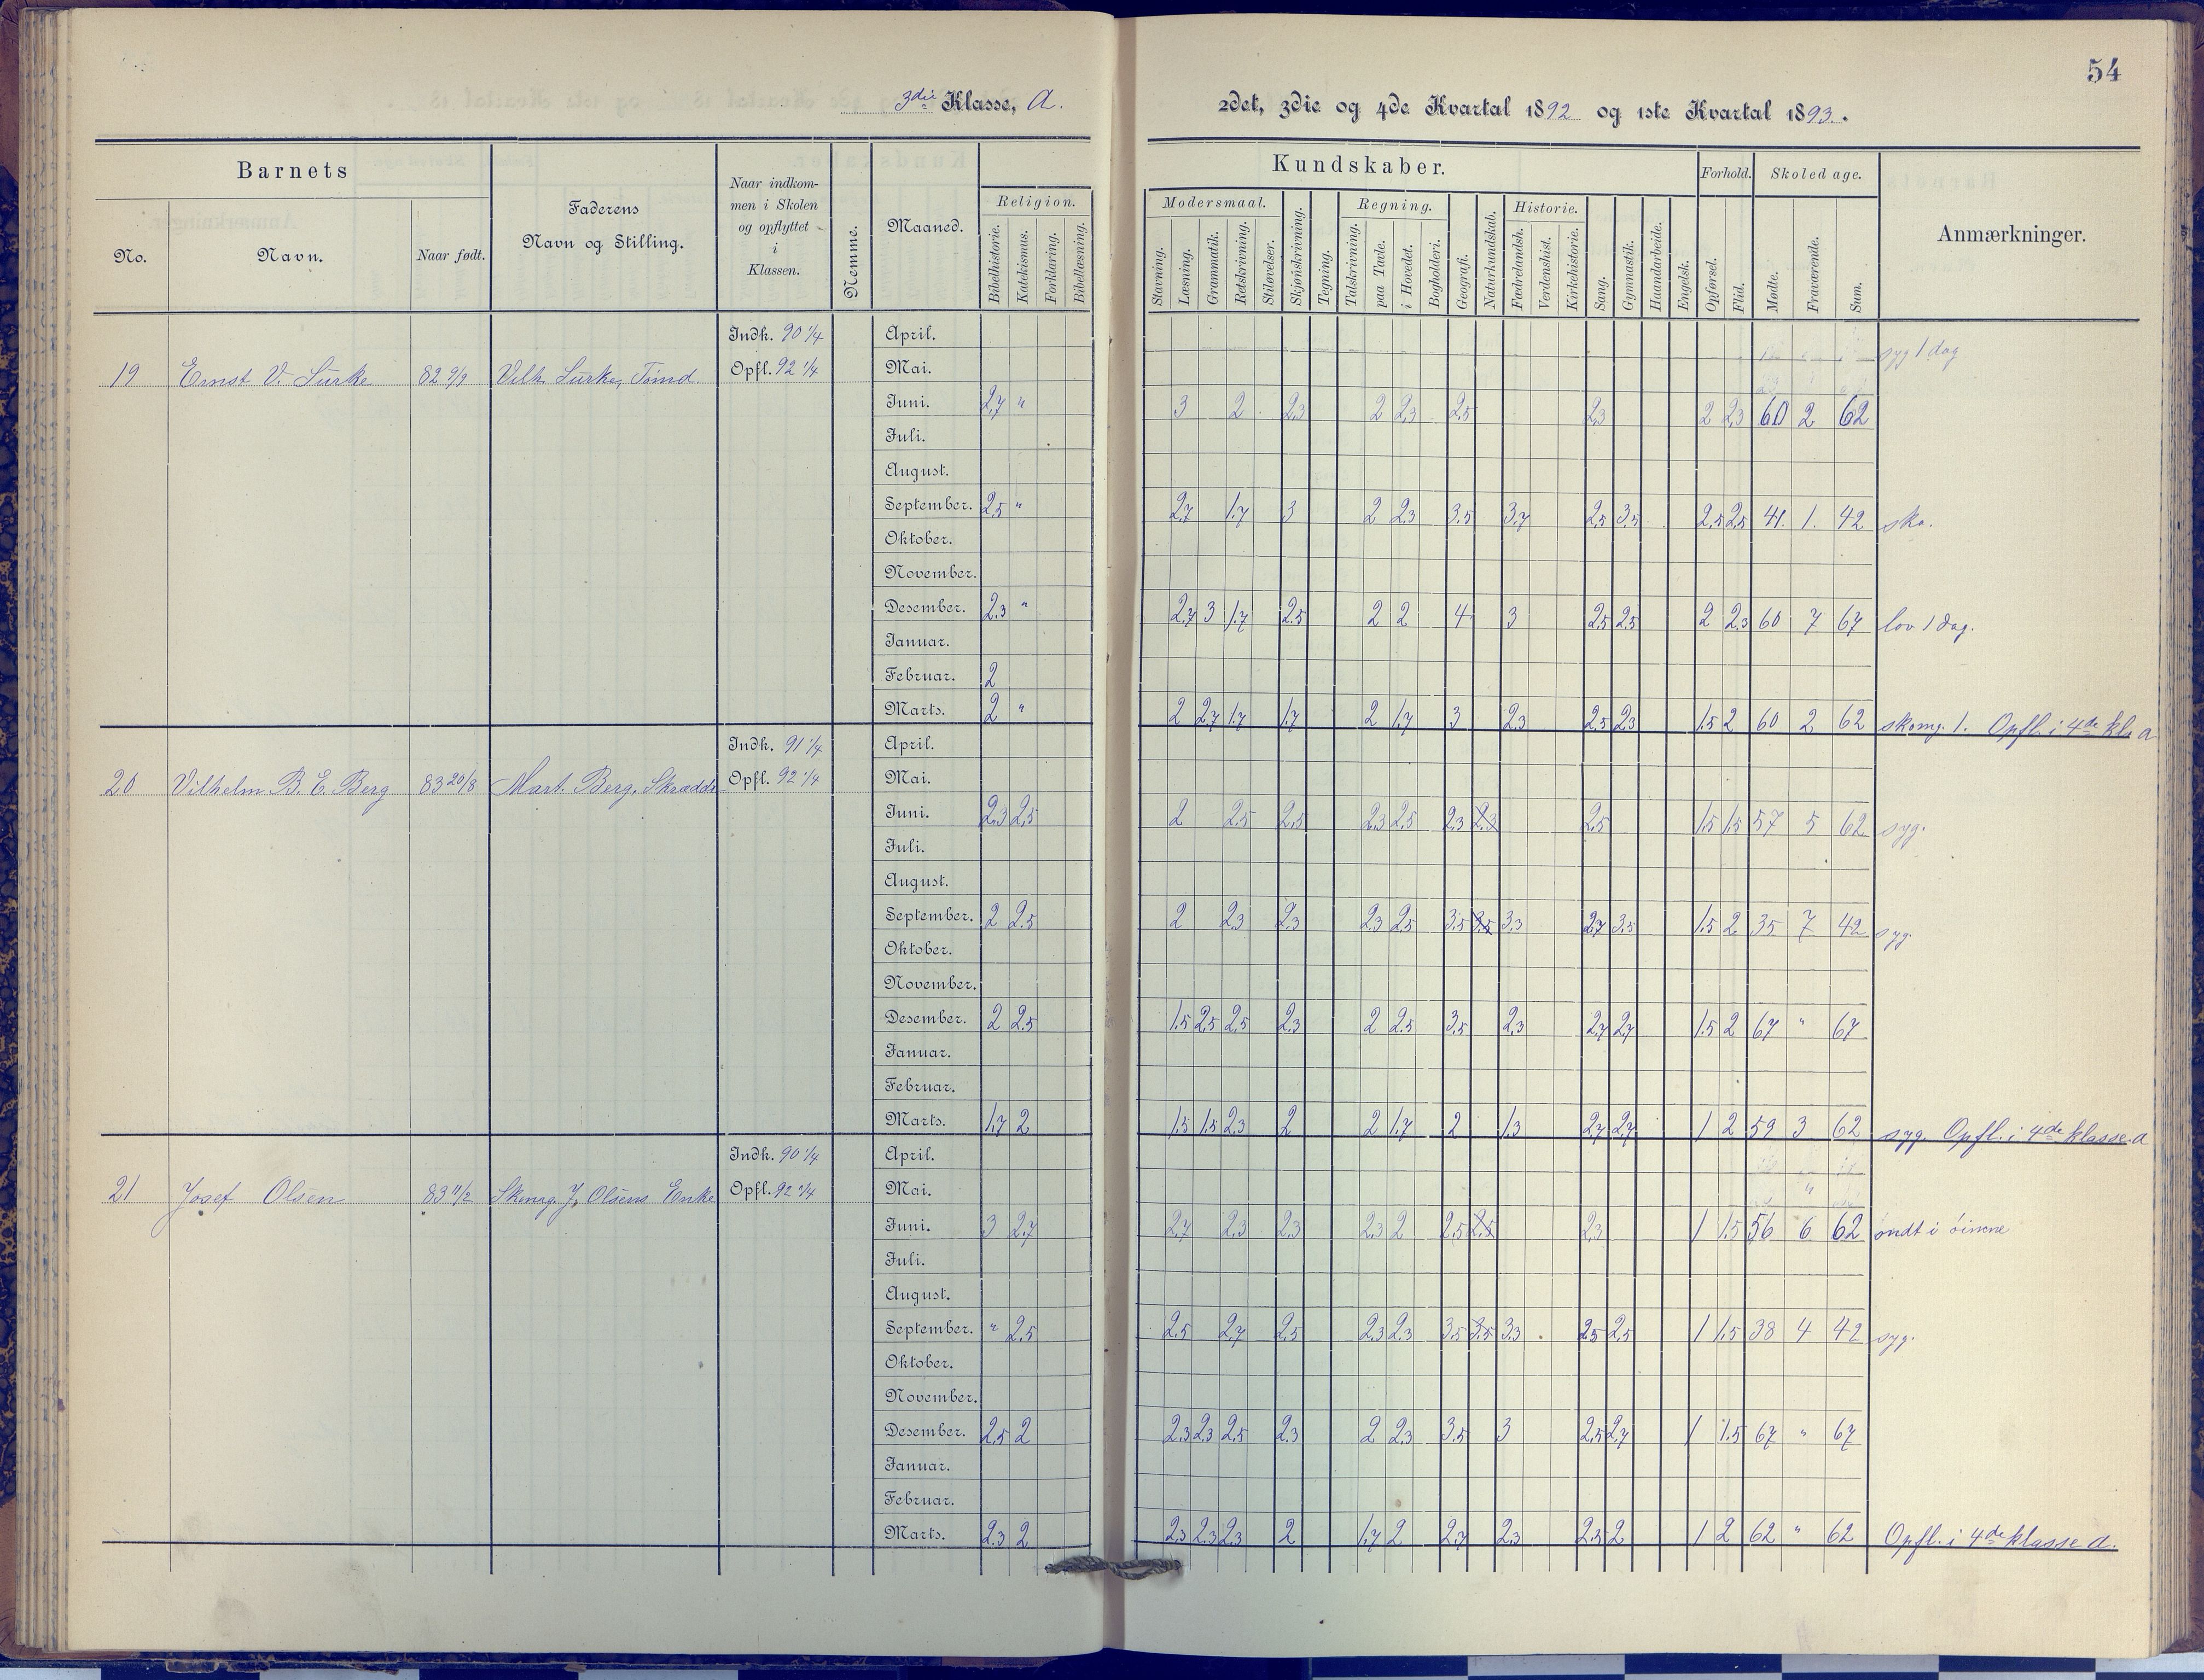 54
3die Klasse, A.
2det, 3die og 4de Kvartal 1892 og 1ste Kvartal 1893.
Barnets
No.
Navn.
Naar født.
Faderens
Navn og Stilling.
Naar indkom-
men i Skolen
og opflyttet
i
Klassen.
Nemme.
Maaned.
Kundskaber.
Religion.
Bibelhistorie.
Katekismus.
Forklaring.
Bibellæsning.
Modersmaal.
Stavning.
Læsning.
Grammatik.
Retskrivning.
Stiløvelser.
Skjønskrivning.
Tegning.
Regning.
Talskrivning.
paa Tavle.
i Hovedet.
Bogholderi.
Geografi.
Naturkundskab.
Historie.
Fædrelandsh.
Verdenshist.
Kirkehistorie.
Sang.
Gymnastik.
Haandarbeide.
Engelsk.
Forhold.
Opførsel.
Flid.
Skoledage.
Mødte.
Fraværende.
Sum.
Anmærkninger.
Indk. 90 1/4 April.
syg 1 dag
19 Ernst V. 82 9/9 Vilh. Opfl. 92 1/4 Mai.
Juni. 2,7 " 3 2 2,3 2 2,3 2,5 2,3 2 2,3 60 2 62
Juli.
August.
September. 2,5 " 2,7 1,7 3 2 2,3 3,5 3,7 2,5 3,5 2,5 2,5 41. 1. 42 sko.
Oktober.
November.
Desember. 2,3 " 2,7 3 1,7 2,5 2 2 4 3 2,5 2,5 2 2,3 60 7 67 lov 1 dag.
Januar.
Februar. 2
Marts. 2 " 2 2,7 1,7 1,7 2 1,7 3 2,3 2,5 2,3 1,5 2 60 2 62 skomg. 1. Opfl. i 4de kl. a
Indk. 91 1/4 April.
20 Vilhelm B. E. Berg 83 20/8 Mart. Berg, Skrædder Opfl. 92 1/4 Mai.
Juni. 2,3 2,5 2 2,5 2,5 2,3 2,5 2,3 2,3 2,5 1,5 1,5 57 5 62 syg.
Juli.
August.
September. 2 2,5 2 2,3 2,3 2,3 2,5 3,5 3,5 3,3 2,7 3,5 1,5 2 35 7 42 syg.
Oktober.
November.
Desember. 2 2,5 1,5 2,5 2,5 2,3 2 2,5 3,5 2,3 2,7 2,7 1,5 2 67 " 67
Januar.
Februar.
Marts. 1,7 2 1,5 1,5 2,3 2 2 1,7 2 1,3 2,7 2,7 1 2 59 3 62 syg. Opfl. i 4de klasse a
Indk. 90 1/4 April.
21 Josef Olsen 83 11/2 J. Olsens Enke Opfl. 92 1/4 Mai.
Juni. 3 2,7 2,7 2,3 2,3 2,3 2 2,5 2,5 2,3 1 1,5 56 6 62 ondt i öinene
Juli.
August.
September. " 2,5 2,5 2,7 2,5 2,3 2,3 3,5 3,5 3,3 2,5 2,5 1 1,5 38 4 42 syg.
Oktober.
November.
Desember. 2,5 2 2,3 2,3 2,5 2,3 2 2,3 3,5 3 2,5 2,7 1 1,5 67 " 67
Januar.
Februar.
Marts. 2,3 2 2,3 2,3 2,3 2 1,7 2 2,7 2,3 2,3 2 1 2 62 " 62 Opfl. i 4de klasse a.